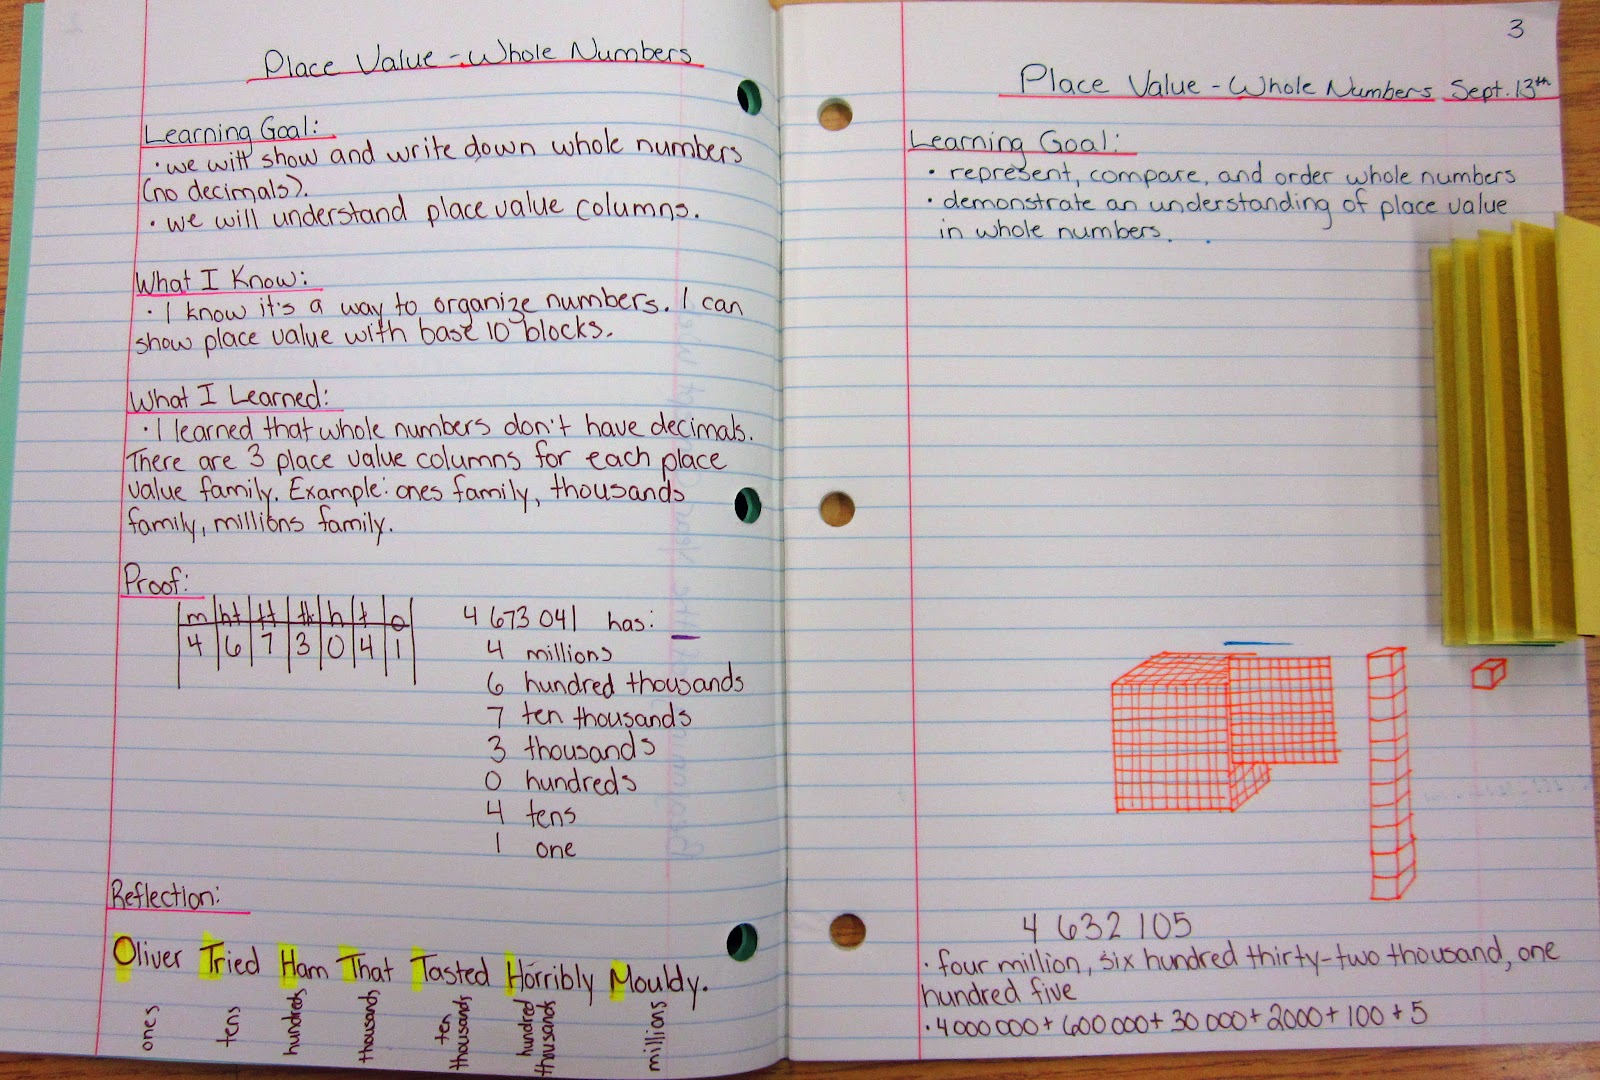 Place Value - Whole Numbers
Learning Goal:
· we will show and write down whole numbers
(no decimals).
· we will understand place value columns.
What I Know:
· I know it's a way to organize numbers. I can
show place value with base 10 blocks.
What I Learned:
· I learned that whole numbers don't have decimals.
There are 3 place value columns for each place
value family. Example: ones family, thousands
family, millions family.
Proof:
m ht tt th h t o
4 6 7 3 0 4 1
4 673 041 has:
4 millions
6 hundred thousands
7 ten thousands
3 thousands
0 hundreds
4 tens
1 one
Reflection:
Oliver Tried Ham That Tasted Horribly Mouldy.
ones
tens
hundreds
thousands
ten
thousands
hundred
thousands
millions
3
Place Value - Whole Numbers Sept. 13th
Learning Goal:
· represent, compare, and order whole numbers
· demonstrate an understanding of place value
in whole numbers.
4 632 105
· four million, six hundred thirty-two thousand, one
hundred five
· 4 000 000 + 600 000 + 30 000 + 2000 + 100 + 5